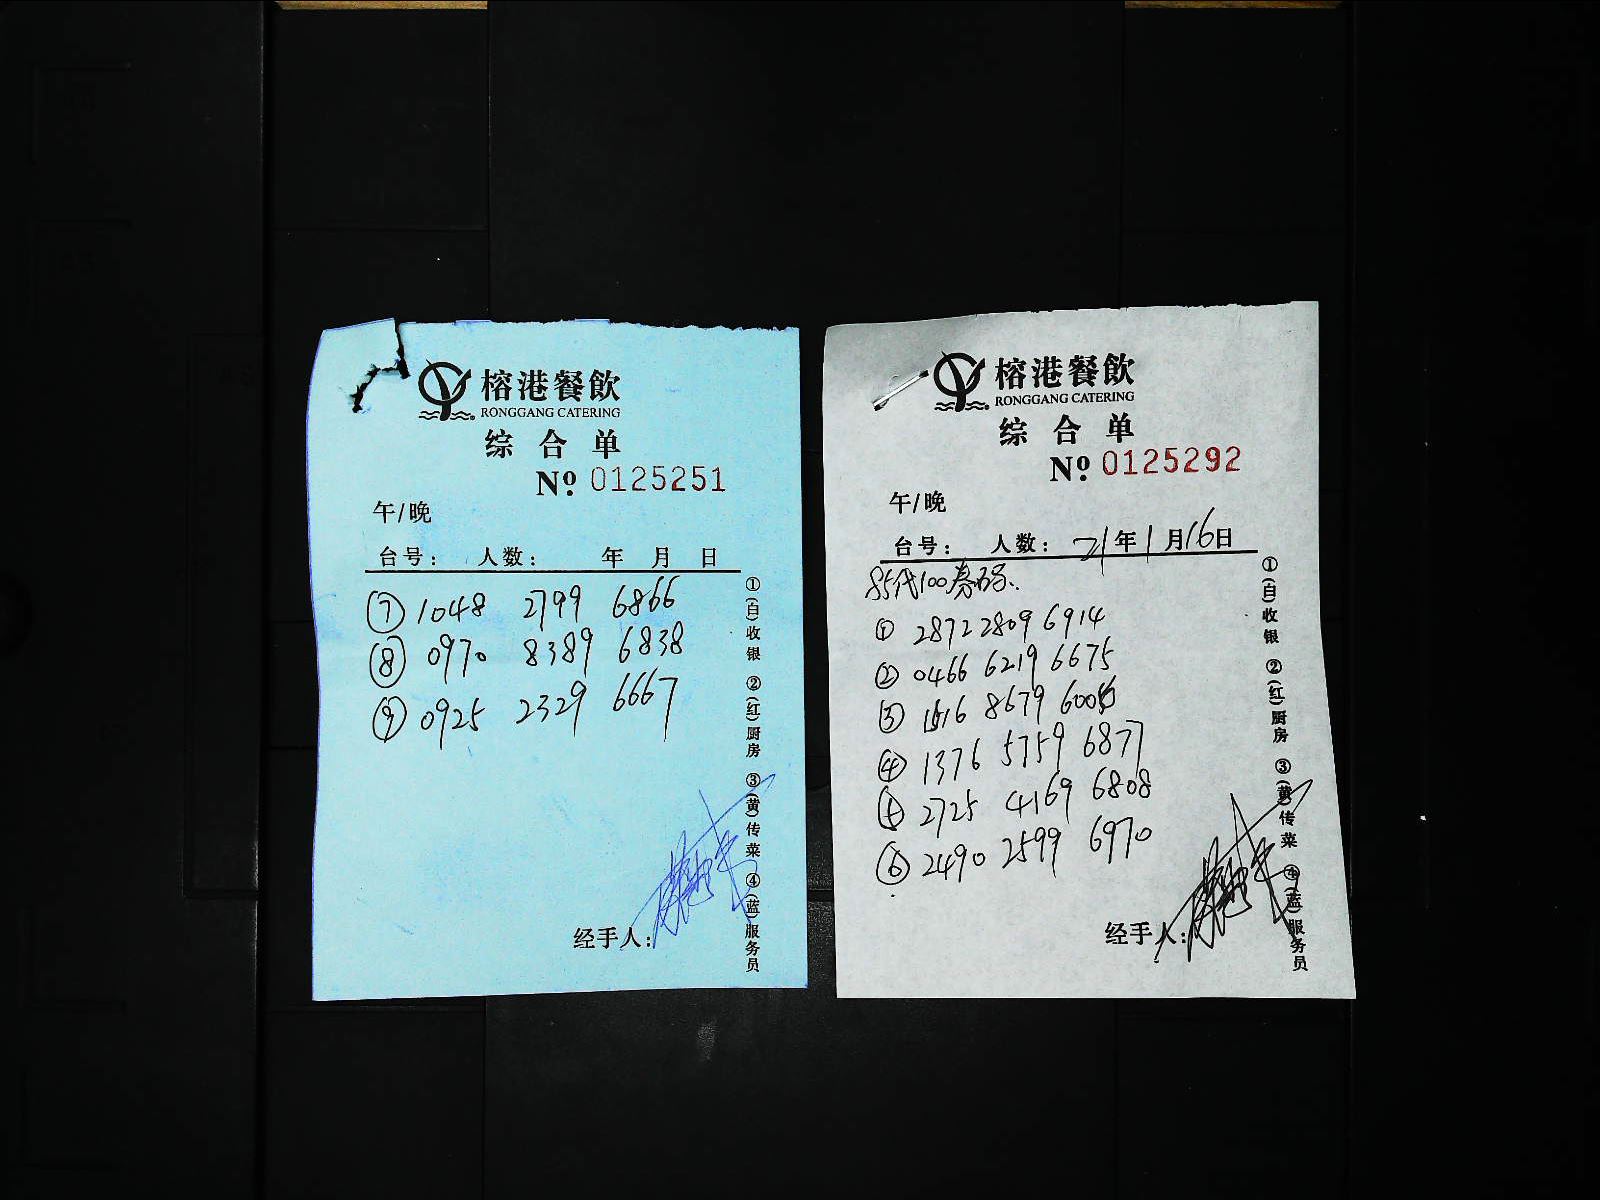 榕港餐飲
RONGGANG CATERING
综合单
Nº 0125251
午/晚
台号： 人数： 年 月 日
⑦ 1048 2799 6866
⑧ 0970 8389 6838
⑨ 0925 2329 6667
经手人：
①(白)收银 ②(红)厨房 ③(黄)传菜 ④(蓝)服务员
榕港餐飲
RONGGANG CATERING
综合单
Nº 0125292
午/晚
台号： 人数： 21年1月16日
85代100券码
① 2872 2809 6914
② 0466 6219 6675
③ 1616 8679 6006
④ 1376 5759 6877
⑤ 2725 4169 6808
⑥ 2490 2599 6970
经手人：
①(白)收银 ②(红)厨房 ③(黄)传菜 ④(蓝)服务员